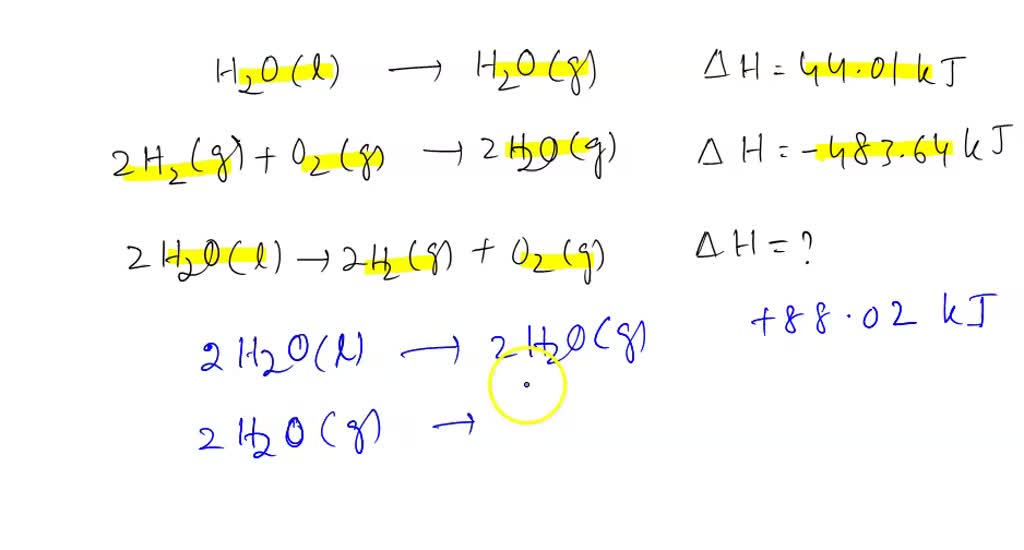 H₂O(l) → H₂O(g) ΔH = 44.01 kJ
2H₂(g) + O₂(g) → 2H₂O(g) ΔH = -483.64 kJ
2H₂O(l) → 2H₂(g) + O₂(g) ΔH = ?
2H₂O(l) → 2H₂O(g) +88.02 kJ
2H₂O(g) →